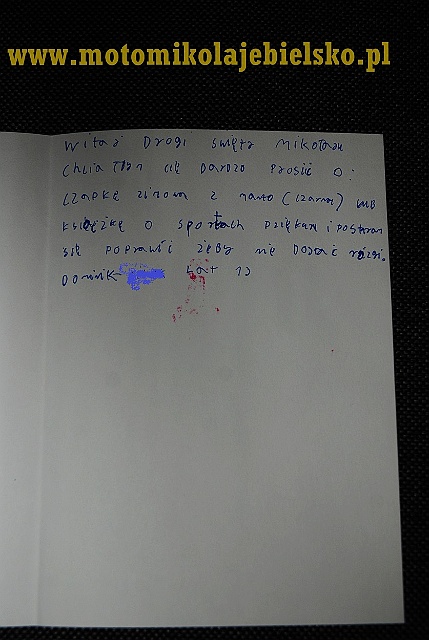 www.motomikolajebielsko.pl
Witaj Drogi święty Mikołaju
Chciałbym cię bardzo prosić o:
czapkę zimową z (czarną) lub
książkę o sportach dziękuję i postaram
się poprawić żeby nie dostać rózgi.
Dominik lat 13